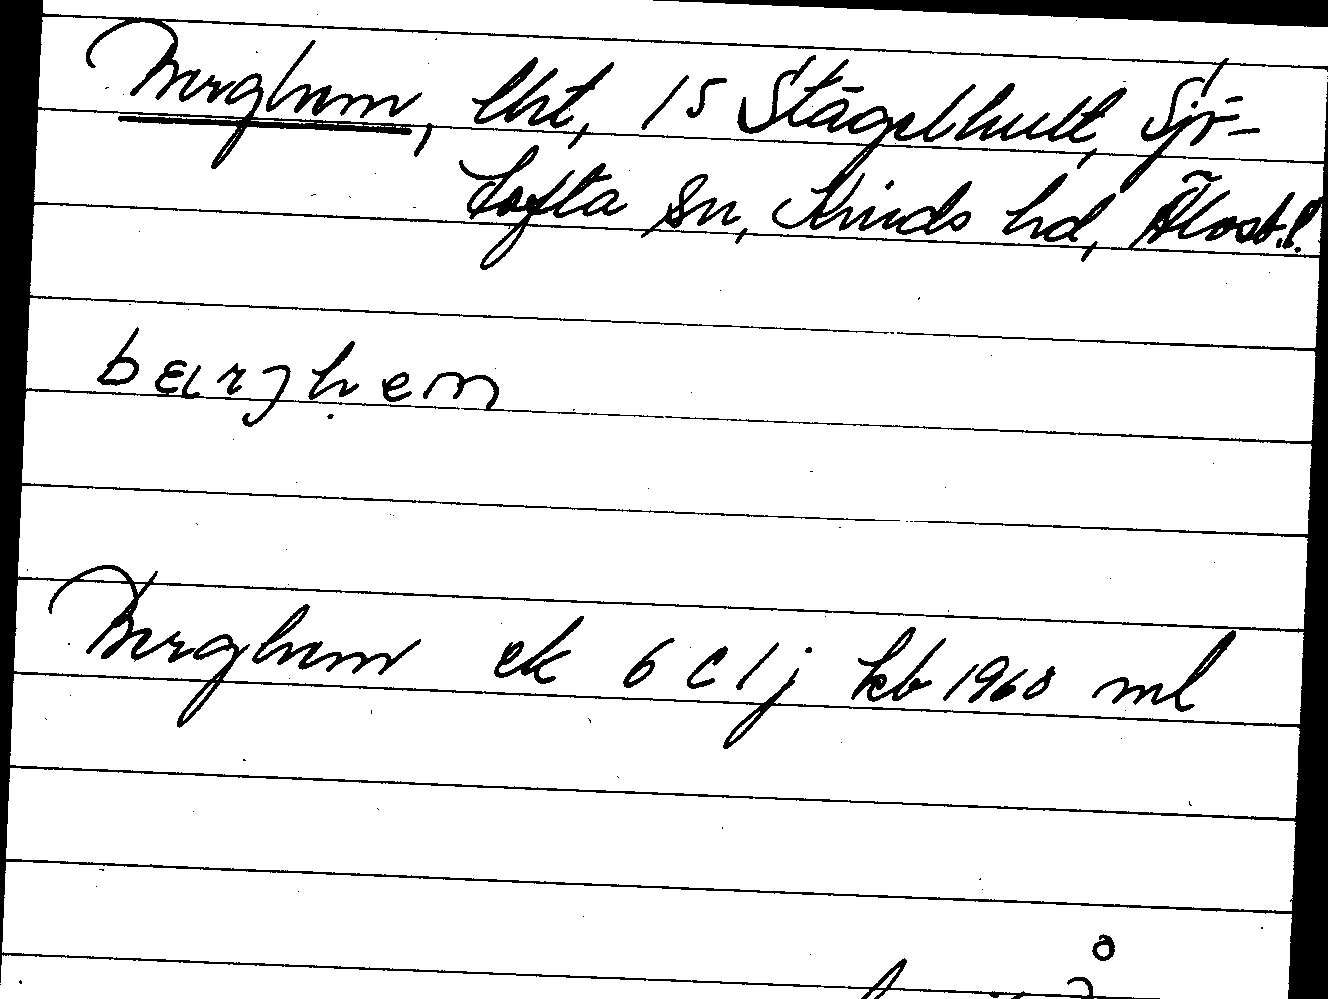 Berghem, lht, 15 Stägelhult, Sjö-
tofta sn, Kinds hd, Älvsb.l.
bɛrgḥem
Berghem ek 6 C 1 j kb 1968 ml